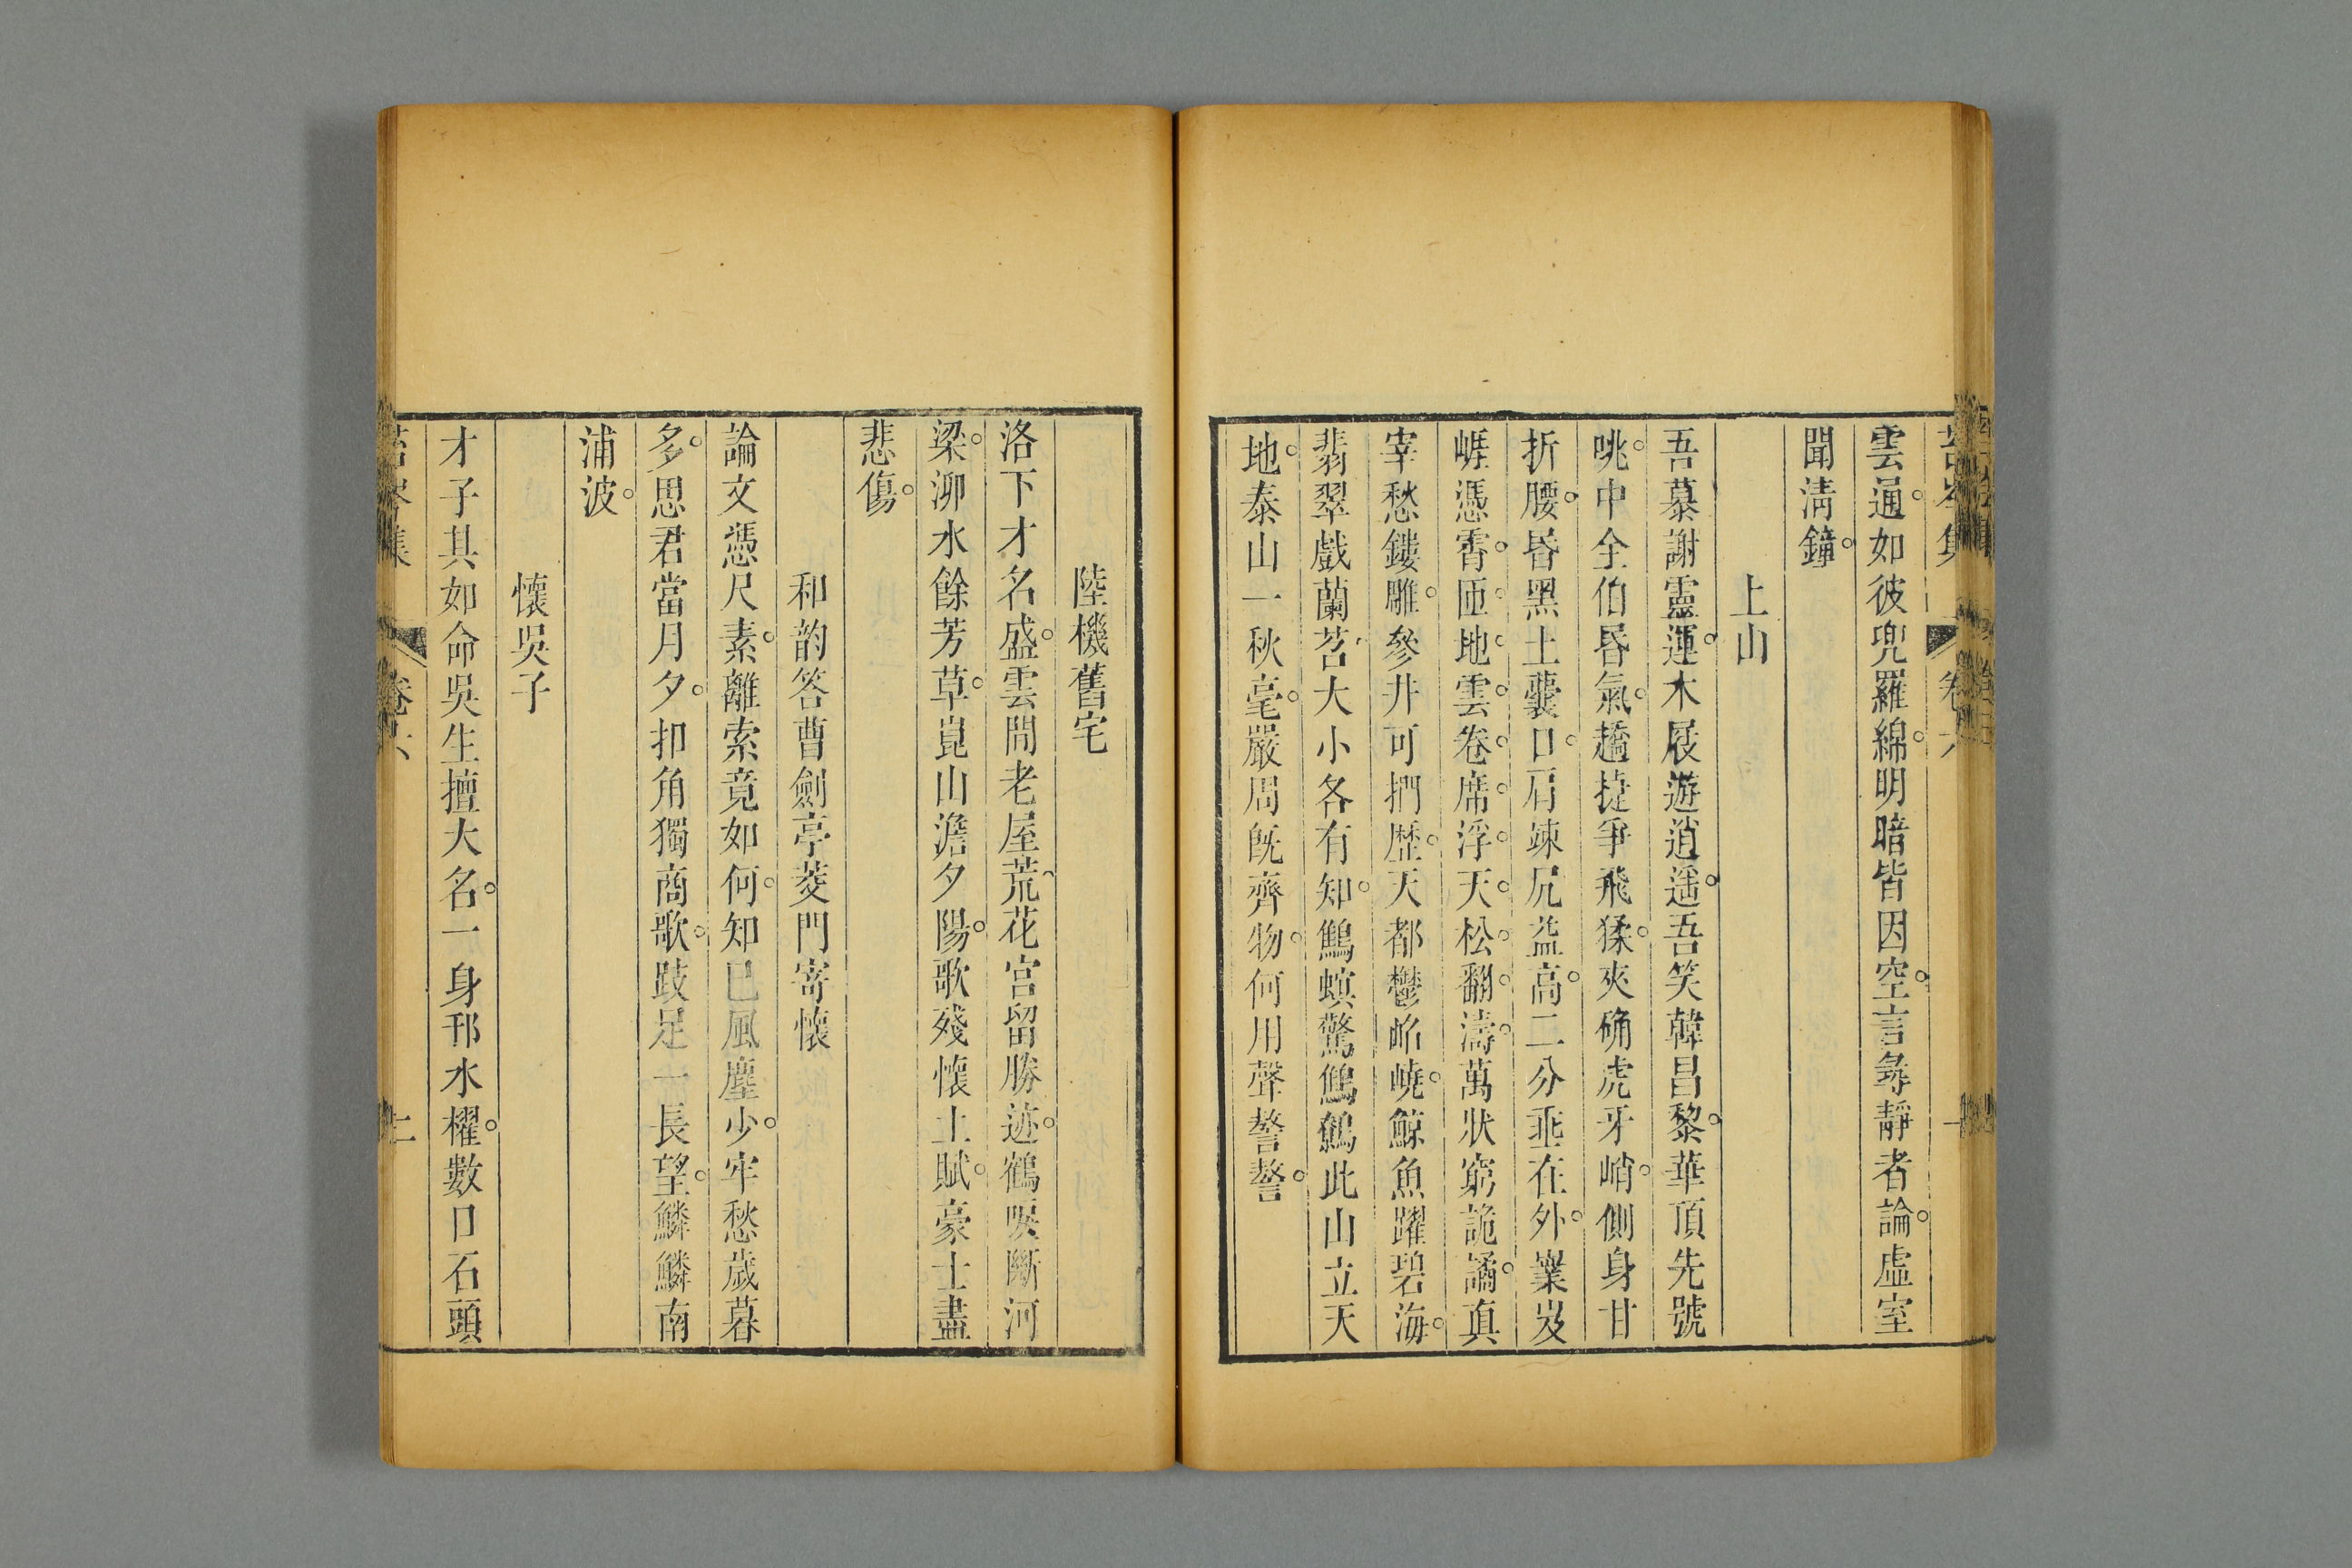 雲通如彼兜羅綿明暗皆因空言尋靜者論虛室
聞淸鐘
上山
吾慕謝靈運木屐遊逍遥吾笑韓昌黎華頂先號
咷中仝伯昏氣趫捷爭飛猱夾确虎牙峭側身甘
折腰昏黑土囊口肩竦尻益高二分垂在外嶪岌
崕憑霄匝地雲卷席浮天松翻濤萬狀窮詭譎眞
宰愁鏤雕參井可捫歷天都鬱㟋嶢鯨魚躍碧海
翡翠戲蘭苕大小各有知鷦螟驚鷦鷯此山立天
地泰山一秋毫嚴周旣齊物何用聲謷謷
陸機舊宅
洛下才名盛雲間老屋荒花宮留勝迹鶴唳斷河
梁泖水餘芳草崑山澹夕陽歌殘懷土賦豪士盡
悲傷
和韵答曹劍亭菱門寄懷
論文憑尺素離索竟如何知已風塵少牢愁歲暮
多思君當月夕扣角獨商歌跂足一長望鱗鱗南
浦波
懷吳子
才子其如命吳生擅大名一身邗水櫂數口石頭
卷六